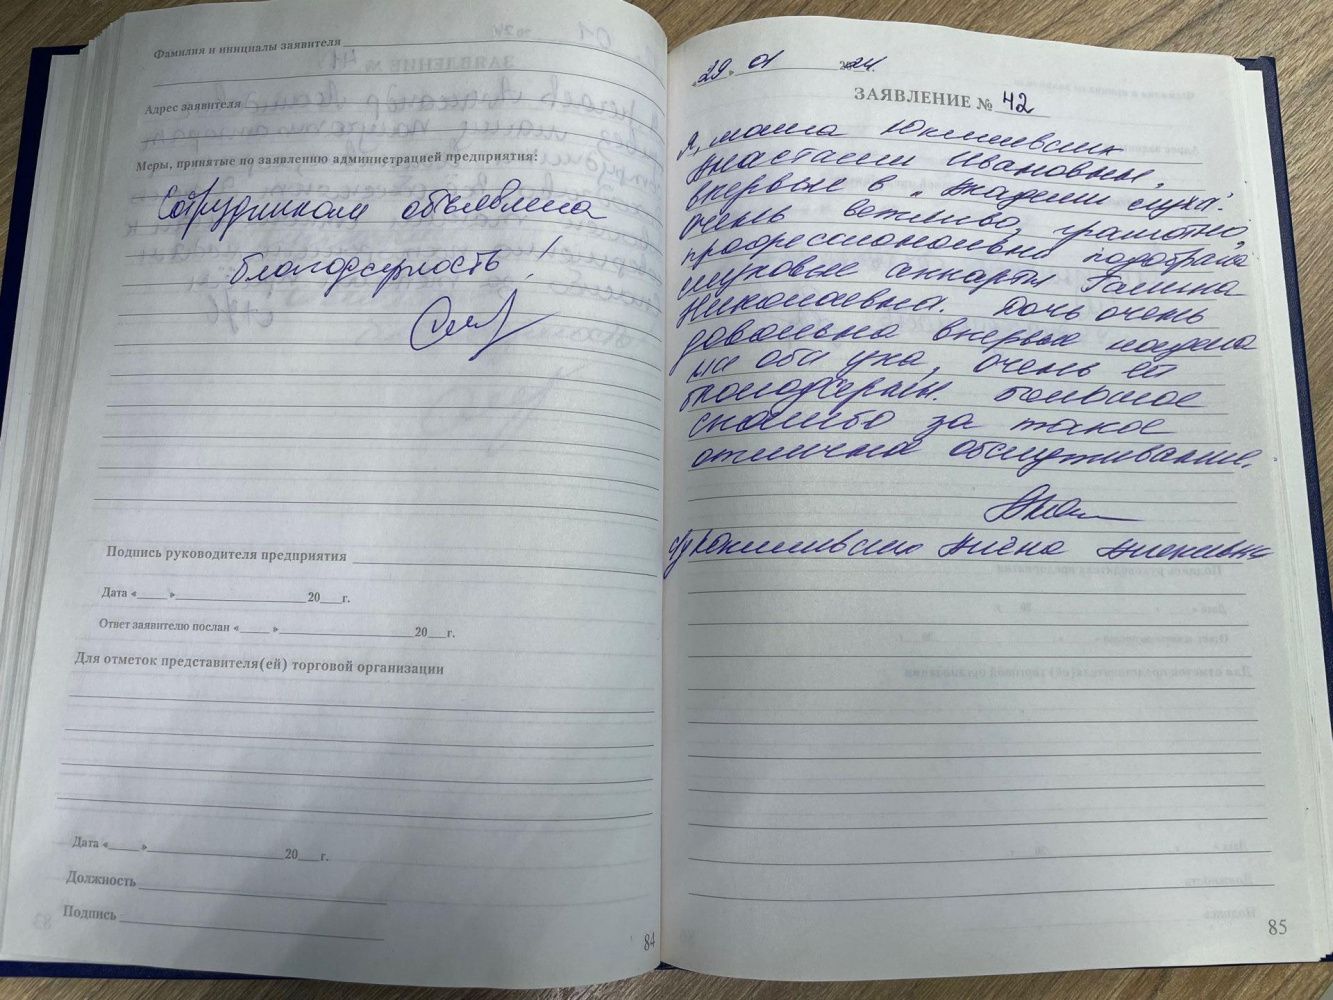 Фамилия и инициалы заявителя
Адрес заявителя
Меры, принятые по заявлению администрацией предприятия:
Сотрудникам объявлена
благодарность!
Подпись руководителя предприятия
Дата «___» ___ 20___г.
Ответ заявителю послан «___» ___ 20___г.
Для отметок представителя(ей) торговой организации
Дата «___» ___ 20___г.
Должность
Подпись
84
«29» 01 2024г.
ЗАЯВЛЕНИЕ № 42
Я, мама
Анастасии Ивановны,
впервые в "Академии слуха".
Очень вежливо, грамотно,
профессионально подобрала
слуховые аппараты Галина
Николаевна. Дочь очень
довольна впервые надела
на оба уха, очень ей
благодарны. Большое
спасибо за такое
отличное обслуживание.
Алёна Алексеевна
85